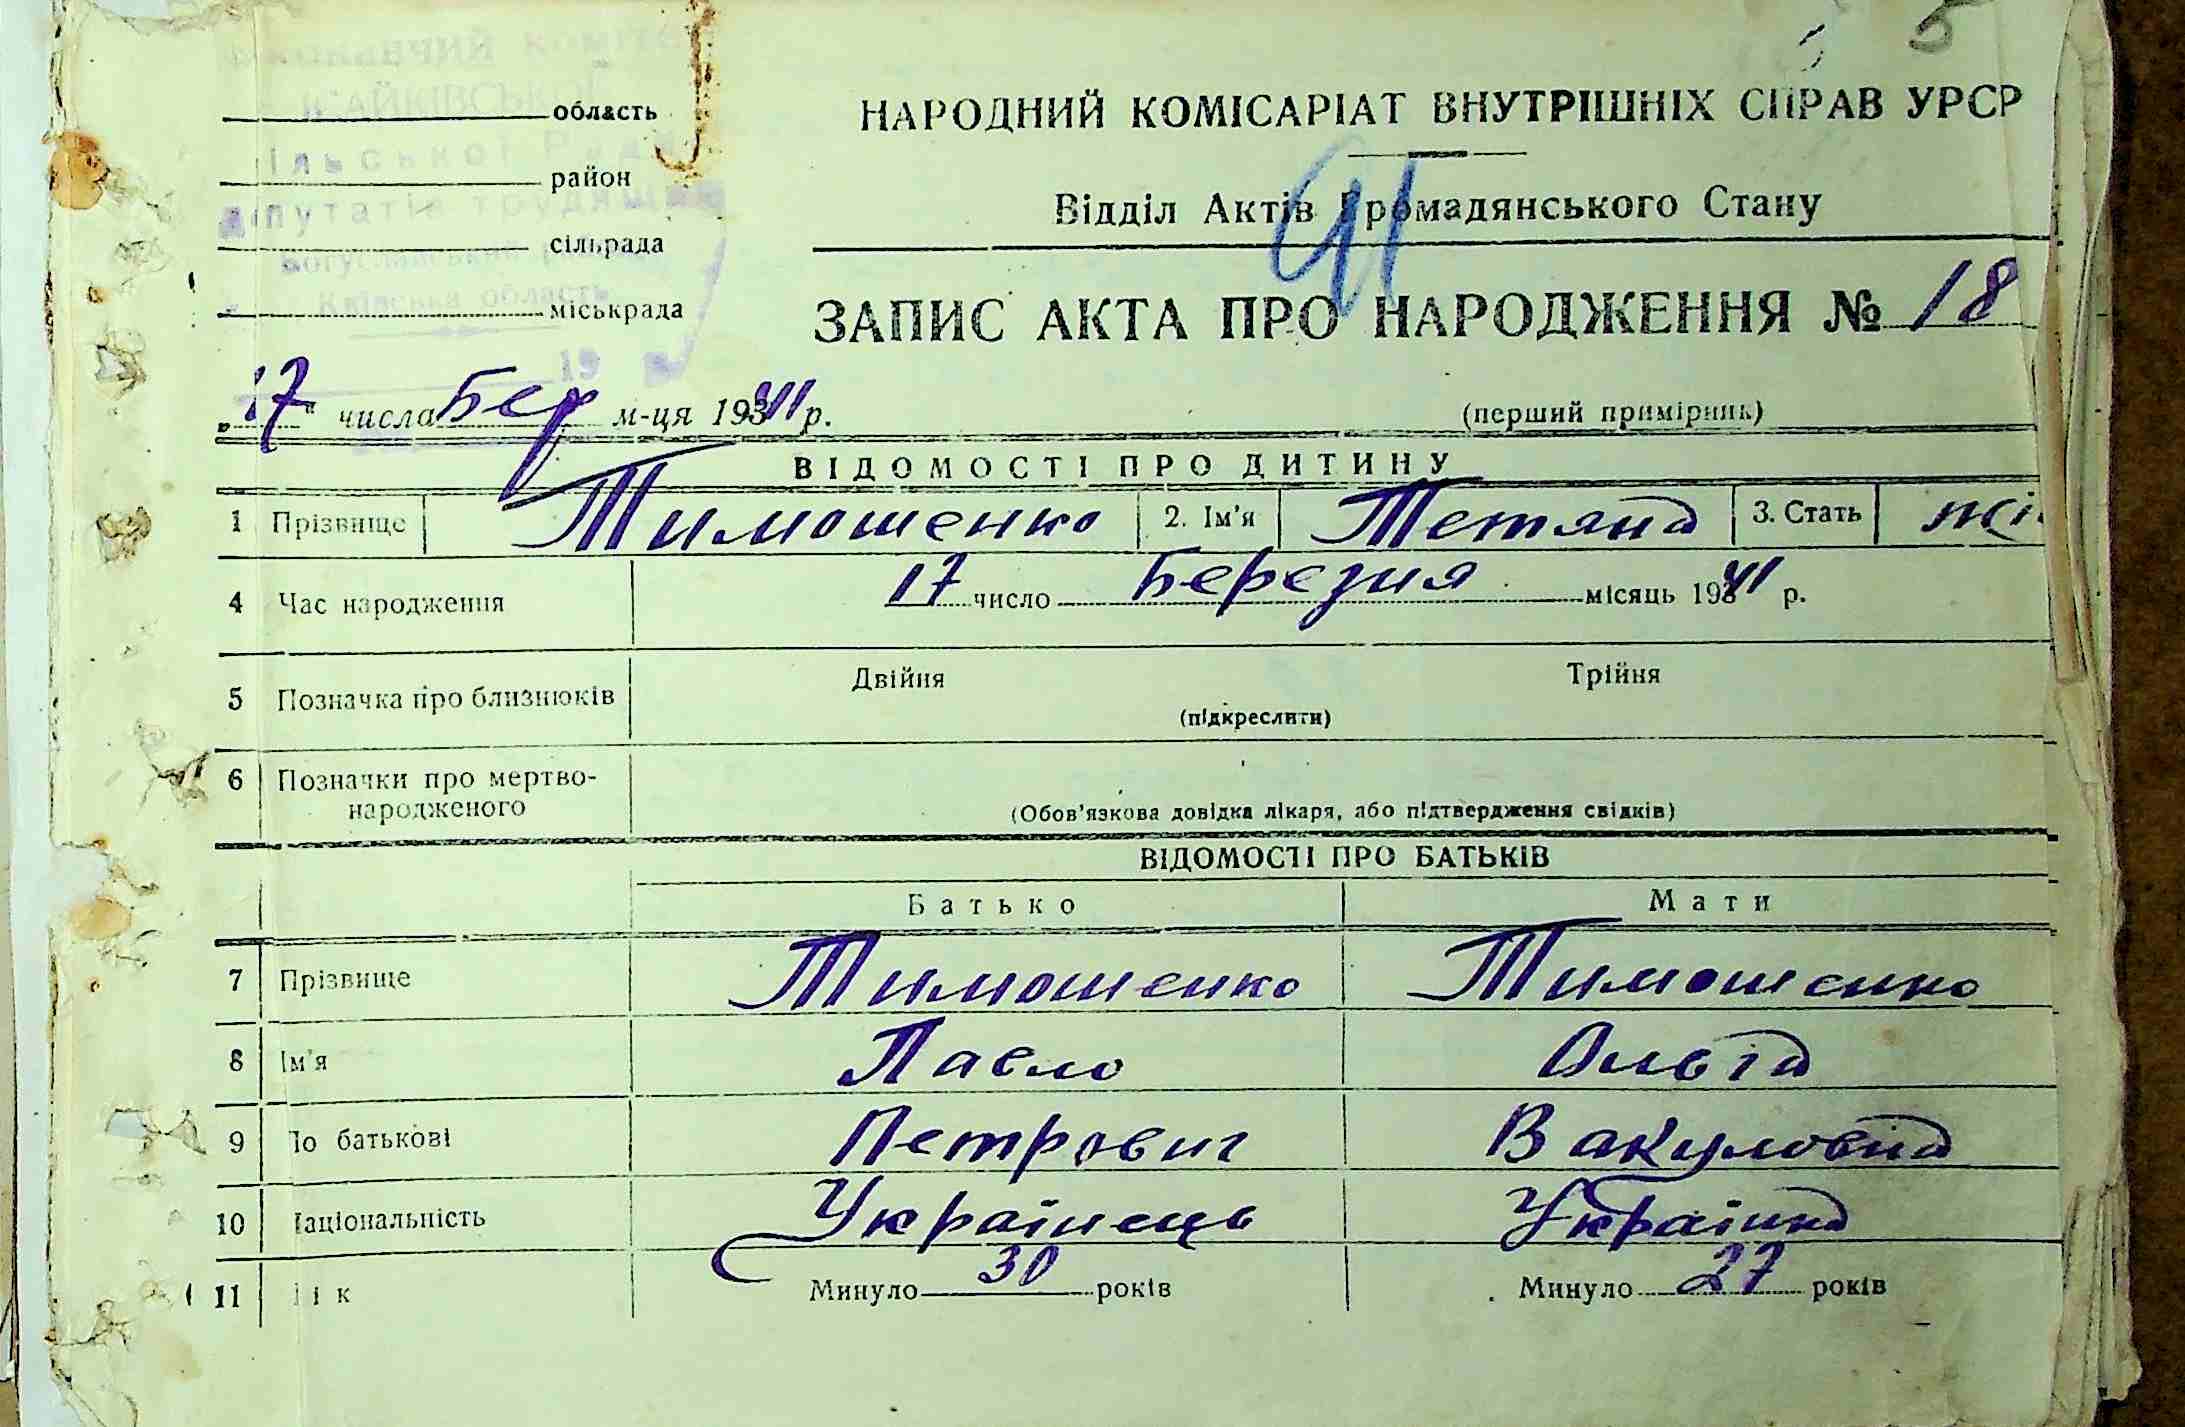 5
область
район
сільрада
міськрада
НАРОДНИЙ КОМІСАРІАТ ВНУТРІШНІХ СПРАВ УРСР
Відділ Актів Громадянського Стану
ЗАПИС АКТА ПРО НАРОДЖЕННЯ № 18
„17“ числа Бер м-ця 1941 р.
(перший примірник)
ВІДОМОСТІ ПРО ДИТИНУ
1 Прізвище Тимошенко 2. Ім'я Тетяна 3. Стать жі
4 Час народження 17 число Березня місяць 1941 р.
5 Позначка про близнюків Двійня Трійня
(підкреслити)
6 Позначки про мертво-
народженого
(Обов'язкова довідка лікаря, або підтвердження свідків)
ВІДОМОСТІ ПРО БАТЬКІВ
Батько Мати
7 Прізвище Тимошенко Тимошенко
8 Ім'я Павло Ольга
9 По батькові Петрович Вакуловна
10 Національність Українець Українка
11 Вік Минуло 30 років Минуло 27 років